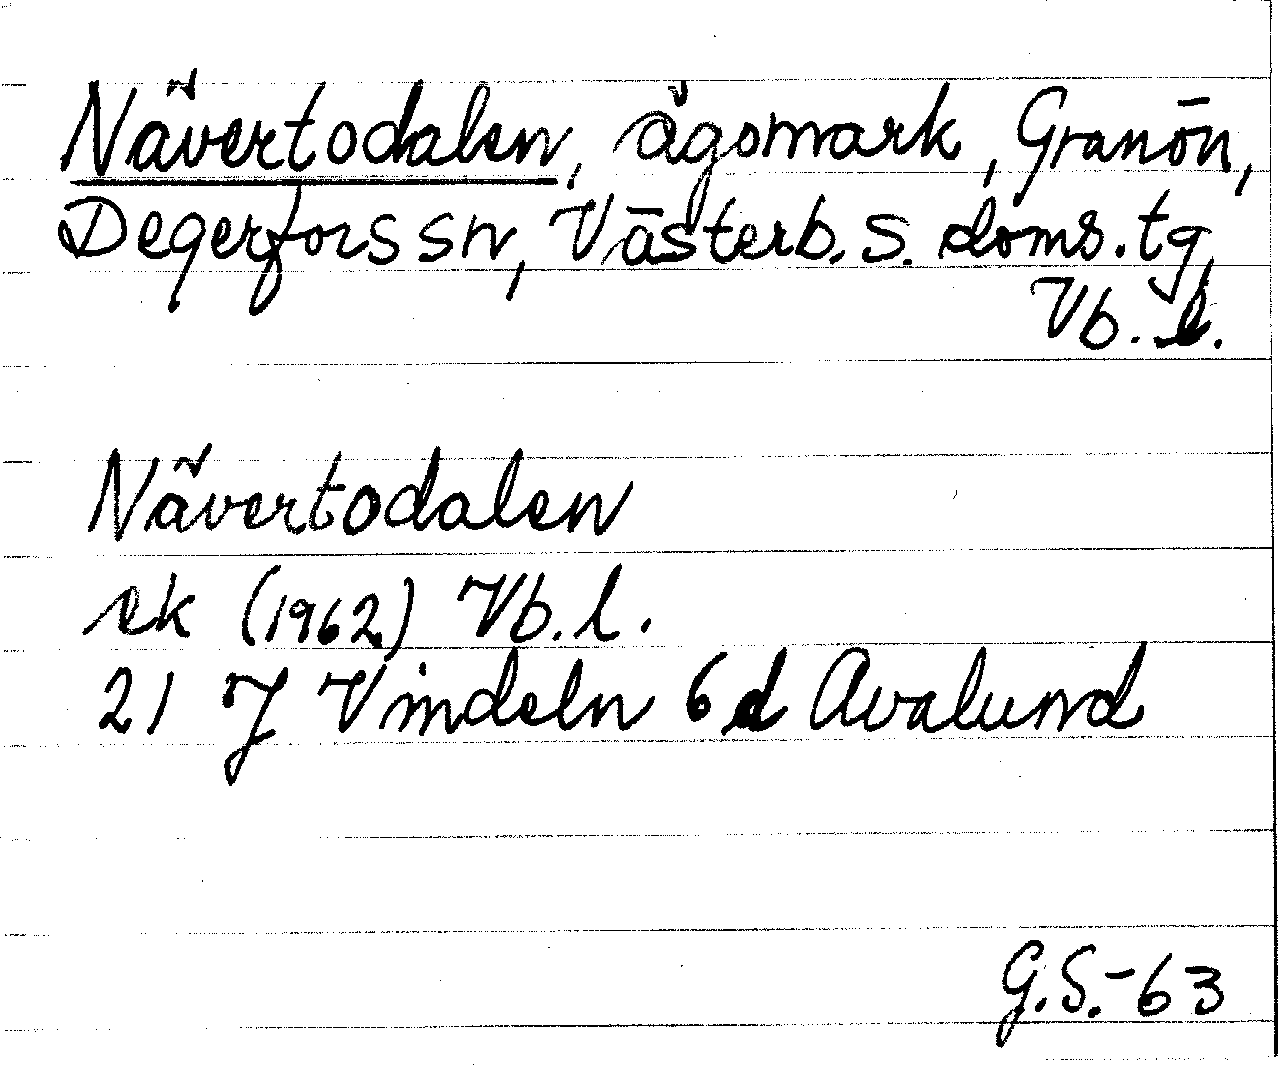 Nävertodalen, ägomark, Granön,
Degerfors sn, Västerb. s. doms. tg,
Vb. l.
Nävertodalen
ek (1962) Vb. l.
21 J Vindeln 6 d Avalund
G.S.-63